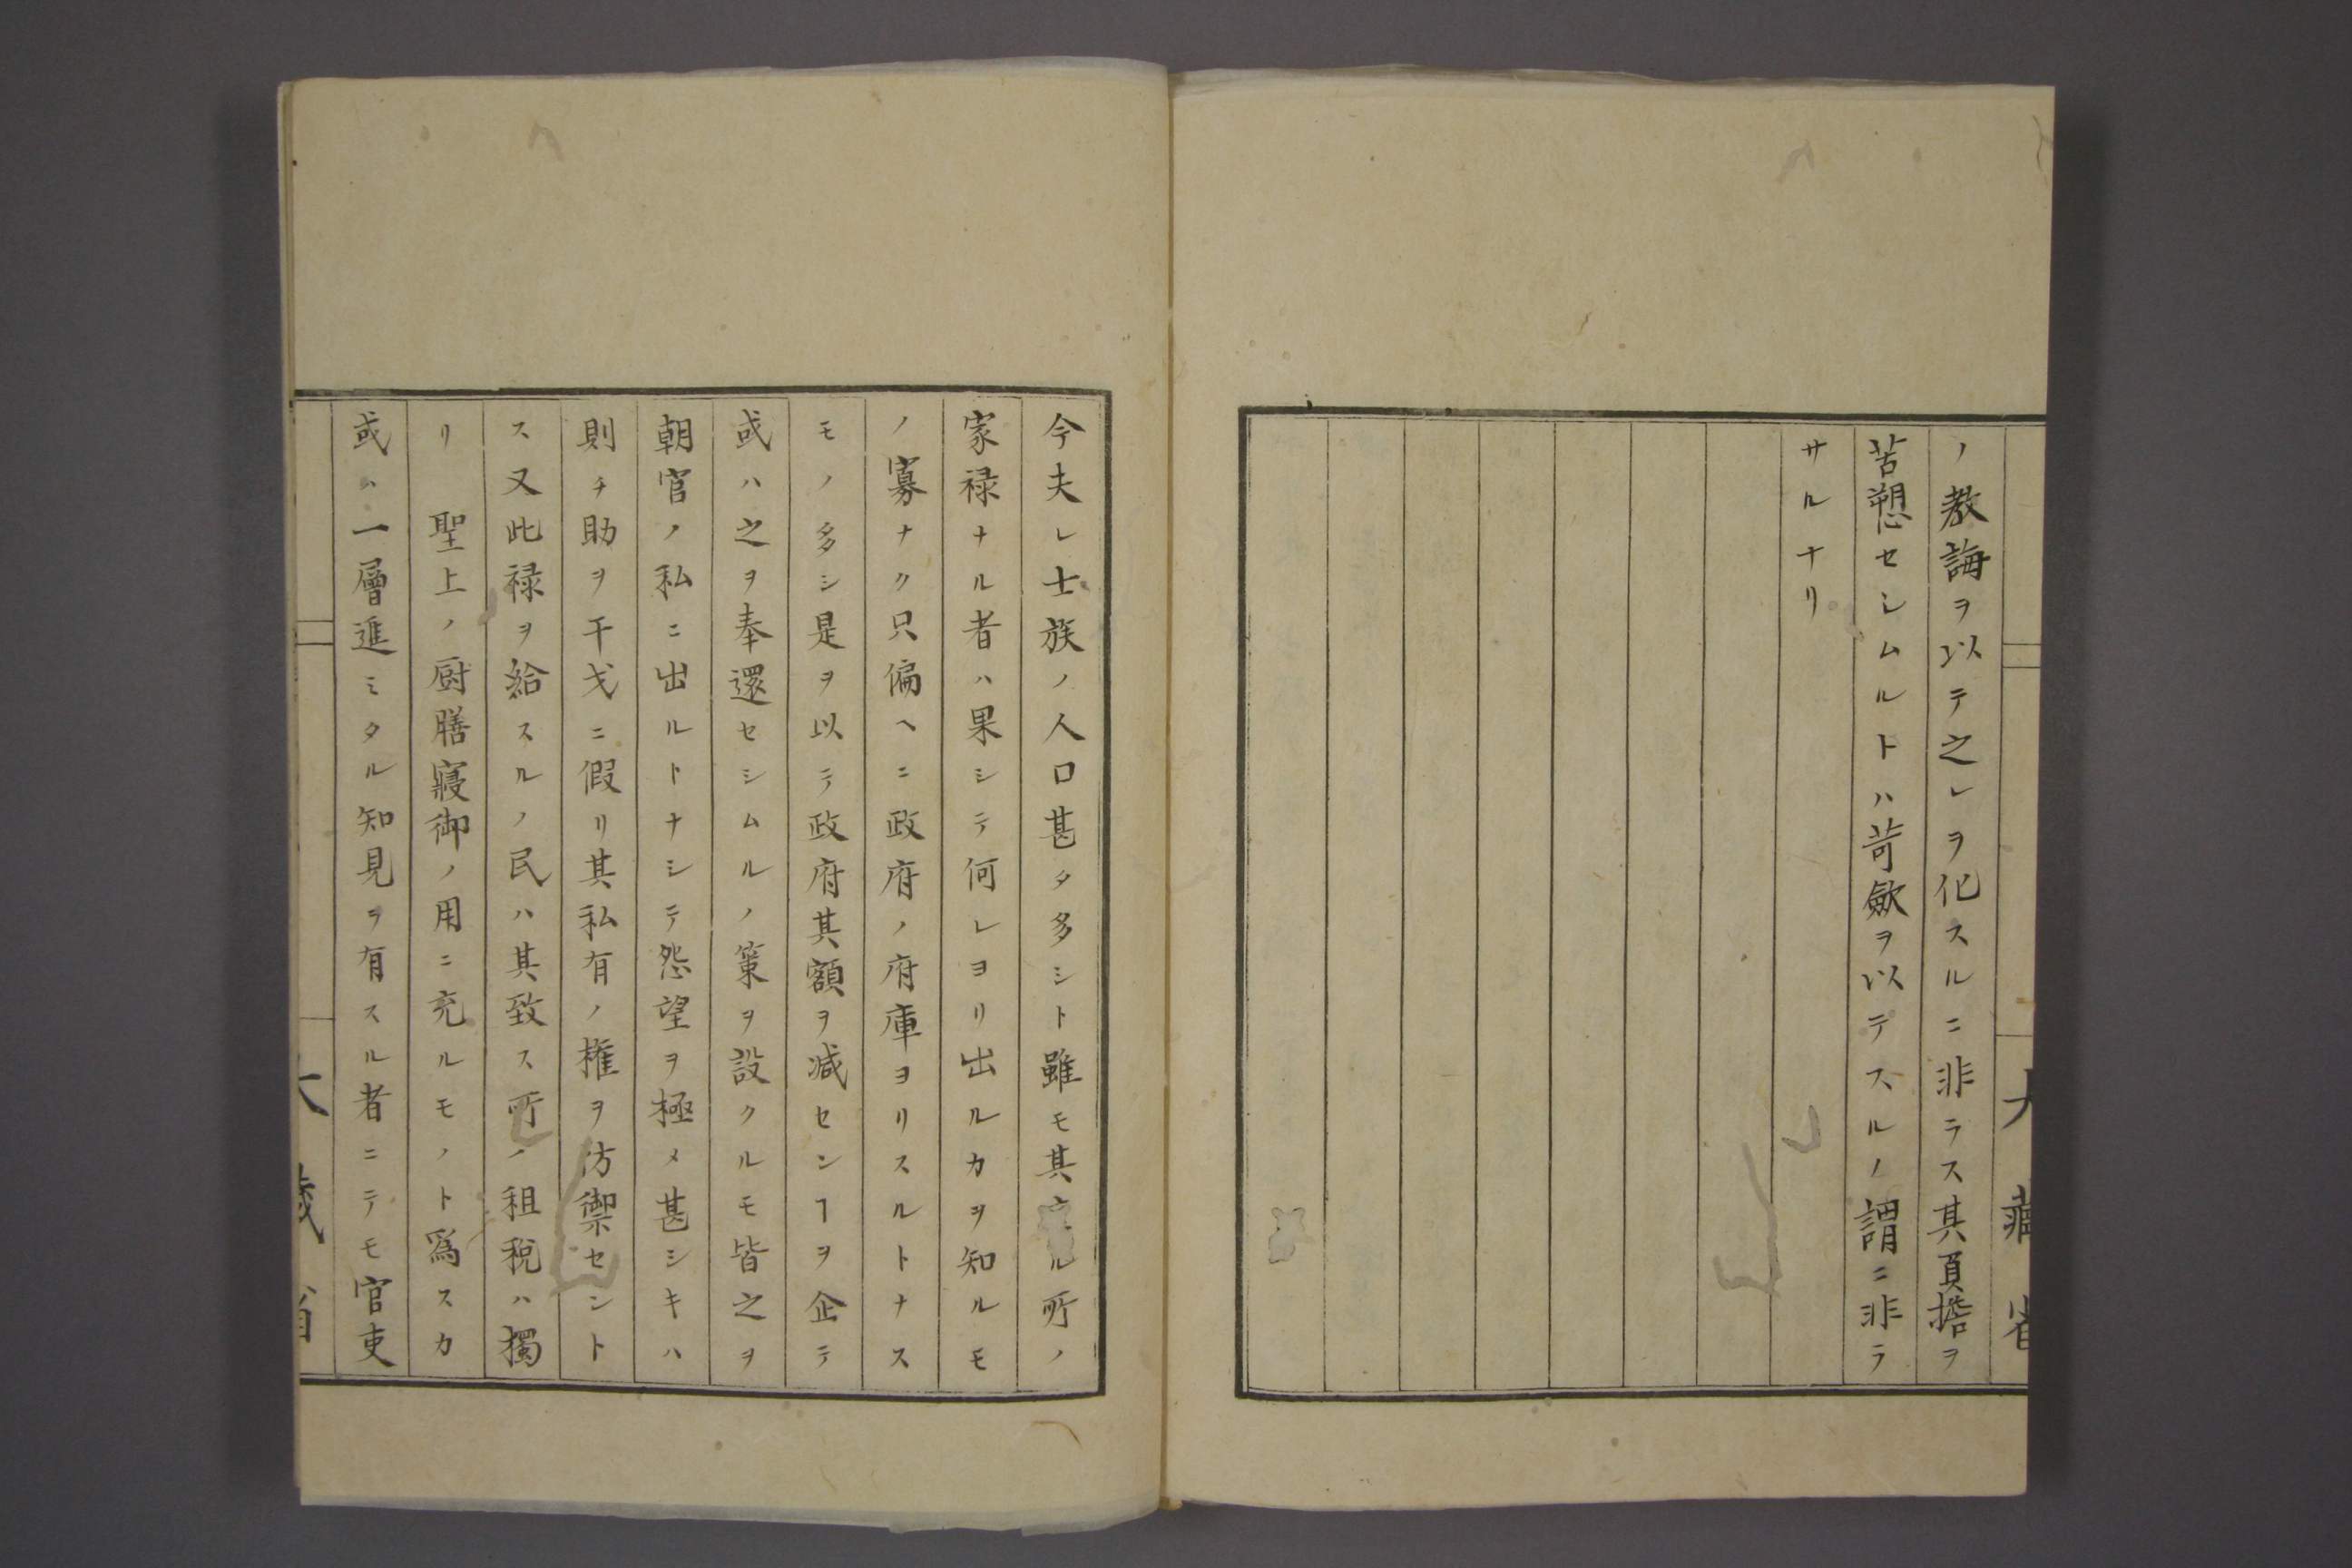 ノ教誨ヲ以テ之レヲ化スルニ非ラス其負擔ヲ
苦愬セシムルトハ苛歛ヲ以テスルノ謂ニ非ラ
サルナリ
大藏省
今夫レ士族ノ人口甚タ多シト雖モ其ル所ノ
家禄ナル者ハ果シテ何レヨリ出ルカヲ知ルモ
ノ寡ナク只偏ヘニ政府ノ府庫ヨリスルトナス
モノ多シ是ヲ以テ政府其額ヲ減センヿヲ企テ
或ハ之ヲ奉還セシムルノ策ヲ設クルモ皆之ヲ
朝官ノ私ニ出ルトナシテ怨望ヲ極メ甚シキハ
則チ助ヲ干戈ニ假リ其私有ノ権ヲ防禦セント
ス又此禄ヲ給スルノ民ハ其致ス所ノ租税ハ獨
リ　聖上ノ厨膳寢御ノ用ニ充ルモノト爲スカ
或ハ一層進ミタル知見ヲ有スル者ニテモ官吏
大藏省